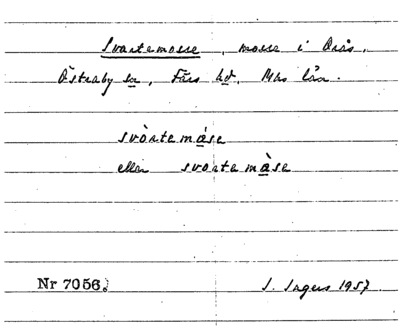 Svartemosse, mosse i Orås,
Östraby sn, Färs hd, Mas län.
svòrtemåse
eller svortemåse
Nr 7056.
J. Ingers 1957